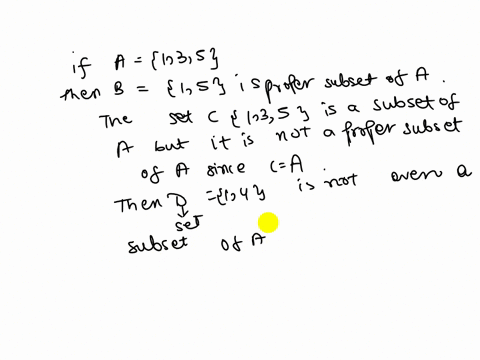 if A = {1,3,5}
then B = {1,5} is profer subset of A.
The set C {1,3,5} is a subset of
A but it is not a profer subset
of A since C=A
Then D = {1,4} is not even a
set
subset of A